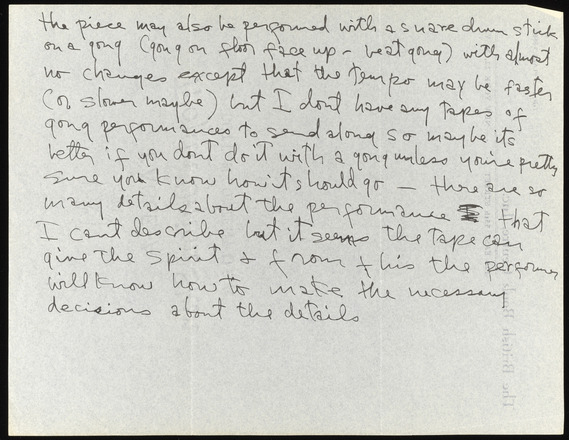 the piece may also be performed with a snare drum stick
on a gong (gong on floor face up - beat gong) with almost
no changes except that the tempo may be faster
(or slower maybe) but I dont have any tapes of
gong performances to send along so maybe its
better if you dont do it with a gong unless you're pretty
sure you know how it should go — there are so
many details about the performance that
I cant describe but it seems the tape can
give the spirit & from this the performer
will know how to make the necessary
decisions about the details
The British